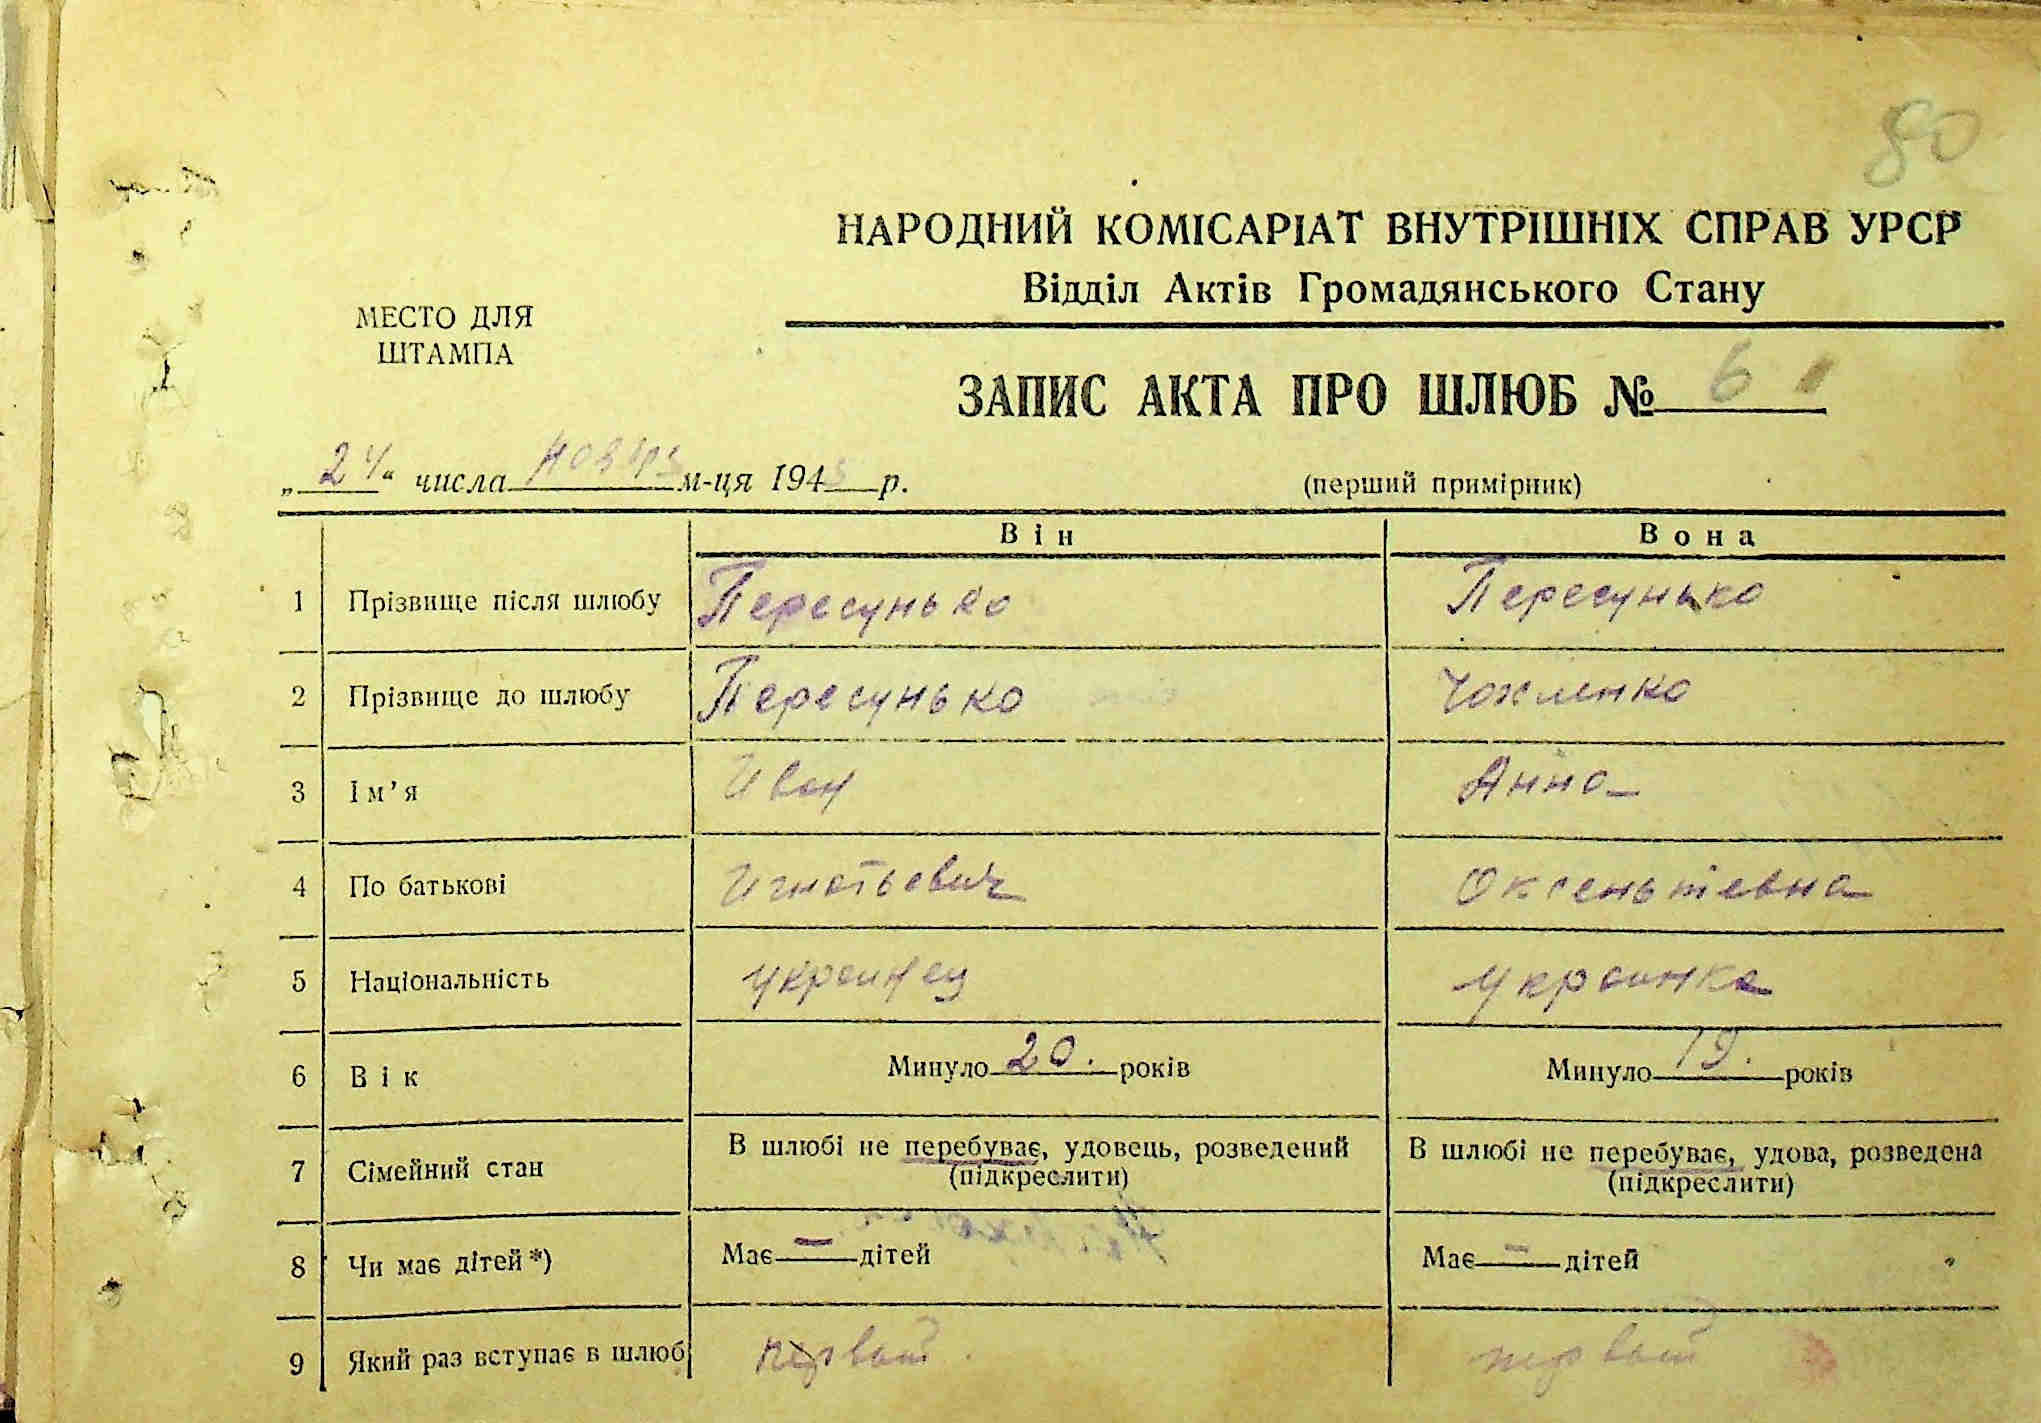 80
НАРОДНИЙ КОМІСАРІАТ ВНУТРІШНІХ СПРАВ УРСР
Відділ Актів Громадянського Стану
МЕСТО ДЛЯ
ШТАМПА
ЗАПИС АКТА ПРО ШЛЮБ № 6
„24“ числа м-ця 1943 р.
(перший примірник)
Він Вона
1 Прізвище після шлюбу Пересунько Пересунько
2 Прізвище до шлюбу Пересунько
3 Ім’я Иван Анна
4 По батькові Игнатьевич Оксеньтевна
5 Національність украинец украинка
6 Вік Минуло 20. років Минуло 19. років
7 Сімейний стан В шлюбі не перебуває, удовець, розведений В шлюбі не перебуває, удова, розведена
(підкреслити) (підкреслити)
8 Чи має дітей *) Має — дітей Має — дітей
9 Який раз вступає в шлюб первый первый